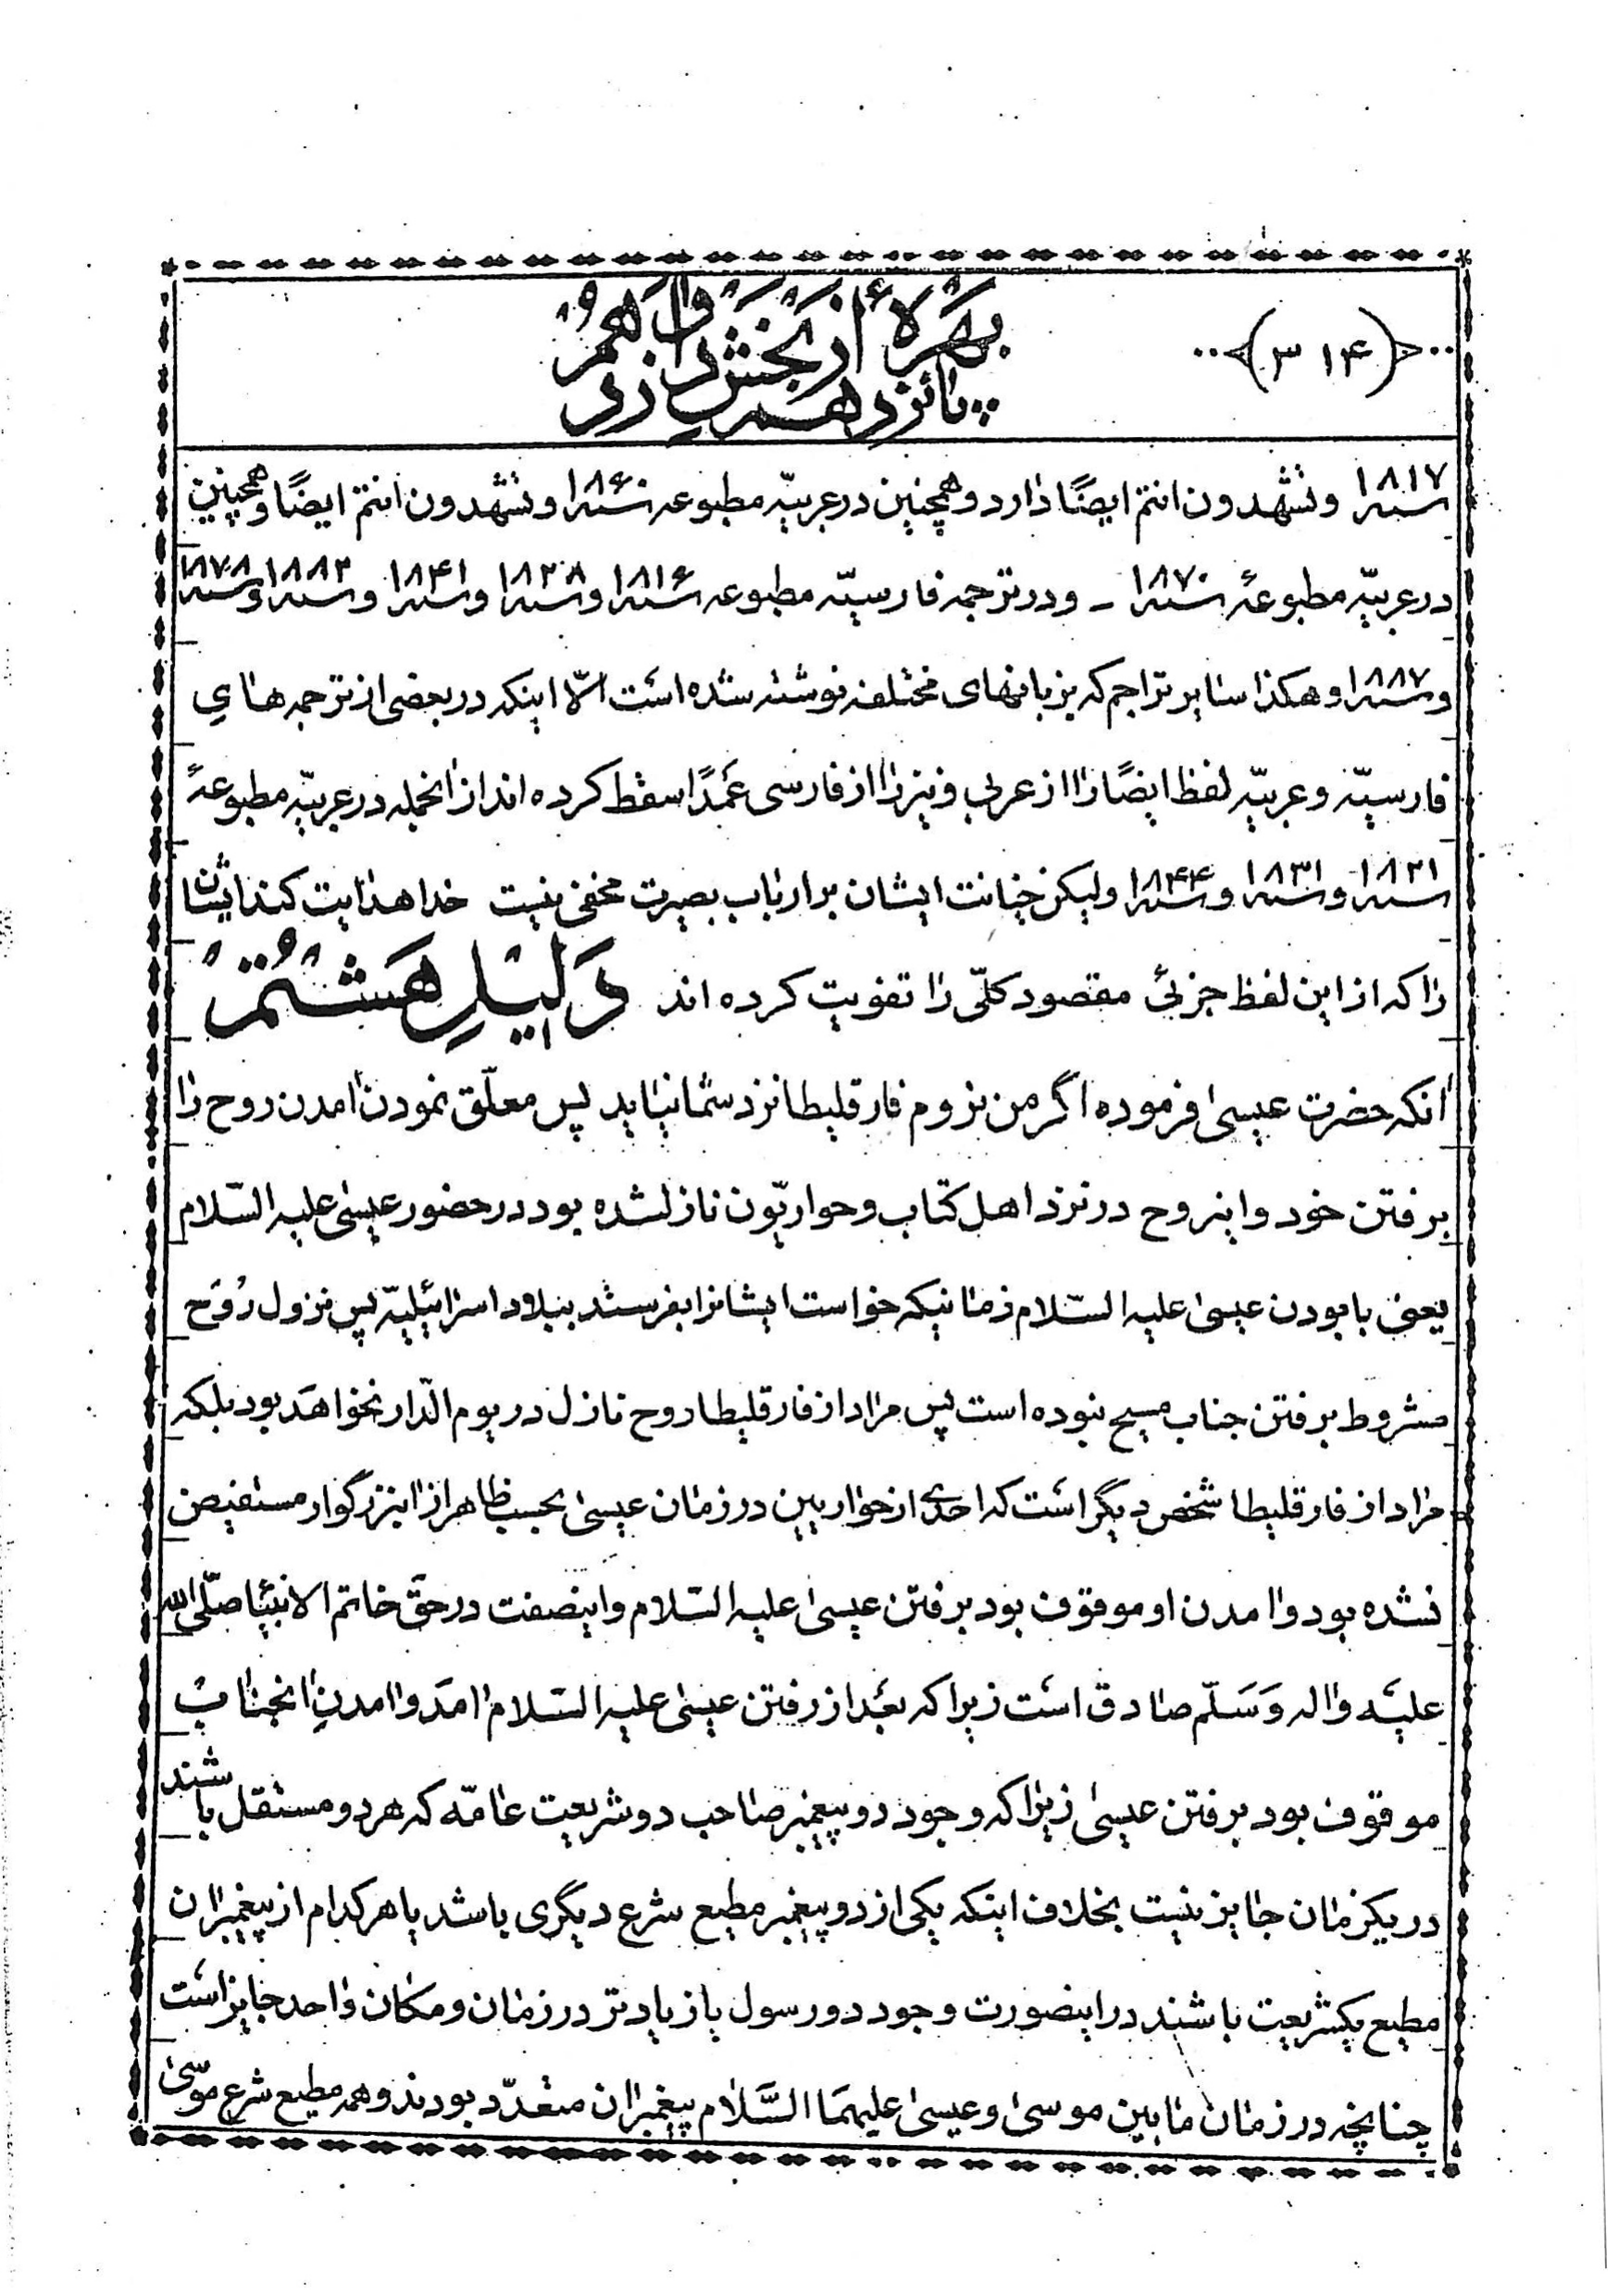 ﴿۳۱۴﴾
بهره از بخش
پانزدهم
سنه ۱۸۱۷ وتشهدون انتم ایضًا دارد وهمچنین در عربیّه مطبوعه سنه ۱۸۶۰ وتشهدون انتم ایضًا وهمچنین
در عربیّه مطبوعهٔ سنه ۱۸۷۰ ــ ودر ترجمه فارسیّه مطبوعه سنه ۱۸۱۶ وسنه ۱۸۲۸ وسنه ۱۸۴۱ وسنه ۱۸۸۲ وسنه ۱۸۷۸
وسنه ۱۸۸۷ وهکذا سایر تراجم که بزبانهای مختلفه نوشته شده است الّا اینکه در بعضی از ترجمه های
فارسیّه وعربیّه لفظ ایضًا را از عربی ونیز را از فارسی عمدًا سقط کرده اند از انجمله در عربیّه مطبوعهٔ
سنه ۱۸۲۱ وسنه ۱۸۳۱ وسنه ۱۸۴۴ ولیکن خیانت ایشان بر ارباب بصیرت مخفی نیست خدا هدایت کند ایشان
را که از این لفظ جزئی مقصود کلّی را تفویت کرده اند دلیل هشتم
انکه حضرت عیسی فرموده اگر من نروم فارقلیطا نزد شما نیاید پس معلّق نمودن امدن روح را
برفتن خود واینروح در نزد اهل کتاب وحواریّون نازلشده بود در حضور عیسی علیه السّلام
یعنی با بودن عیسی علیه السّلام زمانیکه خواست ایشانرا بفرستد ببلاد اسرائیلیّه پس نزول روح
مشروط برفتن جناب مسیح نبوده است پس مراد از فارقلیطا روح نازل در یوم الدّار نخواهد بود بلکه
مراد از فارقلیطا شخص دیگر است که احدی از حواریین در زمان عیسی بحسب ظاهر از اینبزرگوار مستفیض
نشده بود وامدن او موقوف بود برفتن عیسی علیه السّلام واینصفت در حقّ خاتم الانبیا صلّی الله
علیه واله وسلّم صادق است زیرا که بعد از رفتن عیسی علیه السّلام امد وامدن انجناب
موقوف بود برفتن عیسی زیرا که وجود دو پیغمبر صاحب دو شریعت عامّه که هر دو مستقل باشند
در یکزمان جایز نیست بخلاف اینکه یکی از دو پیغمبر مطیع شرع دیگری باشد یا هر کدام از پیغمبران
مطیع یکشریعت باشند در اینصورت وجود دو رسول یا زیادتر در زمان ومکان واحد جایز است
چنانچه در زمان مابین موسی وعیسی علیهما السّلام پیغمبران متعدّد بودند وهمه مطیع شرع موسی